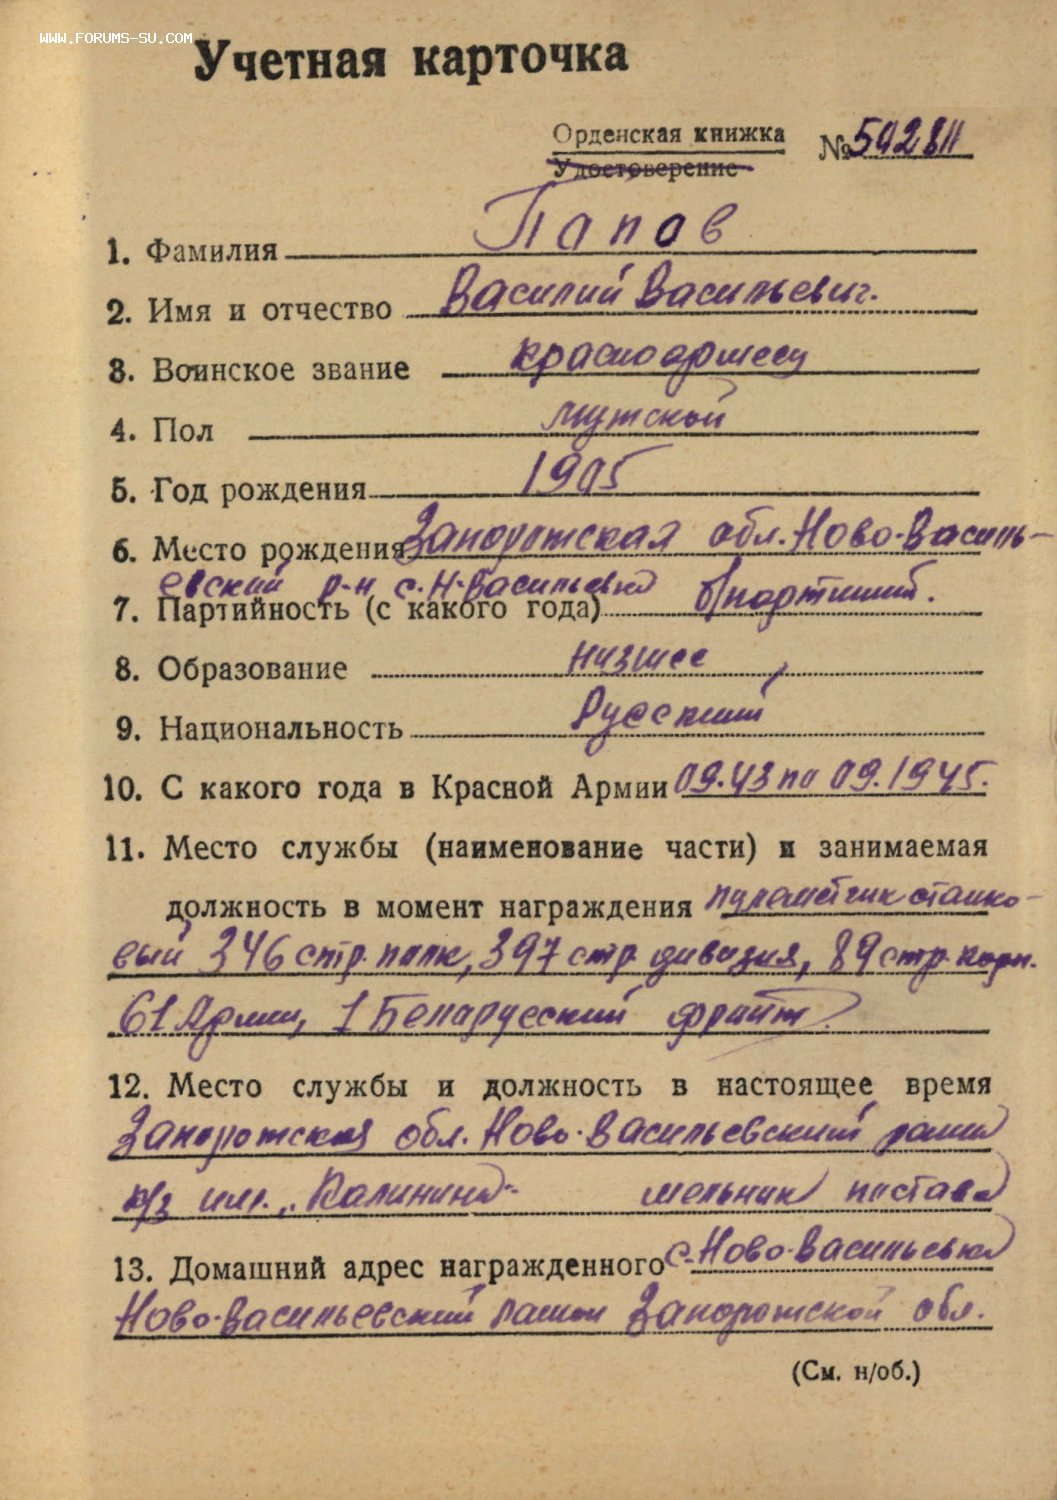 WWW.FORUMS-SU.COM
Учетная карточка
Орденская книжка №542811
Удостоверение
1. Фамилия Папов
2. Имя и отчество Василий Васильевич.
3. Воинское звание красноармеец
4. Пол мужской
5. Год рождения 1905
6. Место рождения Запорожская обл. Ново-Василь-
евский р-н с. Н-Васильевка
7. Партийность (с какого года) б/партийный.
8. Образование низшее
9. Национальность Русский
10. С какого года в Красной Армии 09.43 по 09.1945.
11. Место службы (наименование части) и занимаемая
должность в момент награждения пулеметчик станко-
вый 346 стр. полк, 397 стр. дивизия, 89 стр. корп.
61 Армии, 1 Беларусский фронт.
12. Место службы и должность в настоящее время
Запорожская обл. Ново-Васильевский район
к/з им. „Калинина" мельник
13. Домашний адрес награжденного с. Ново-Васильевка
Ново-Васильевский район Запорожской обл.
(См. н/об.)